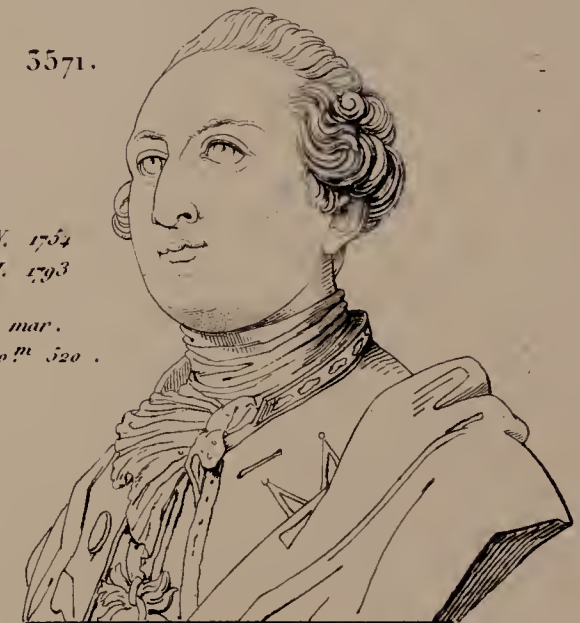 3571.
N. 1754
M. 1793
mar.
0.m 520.